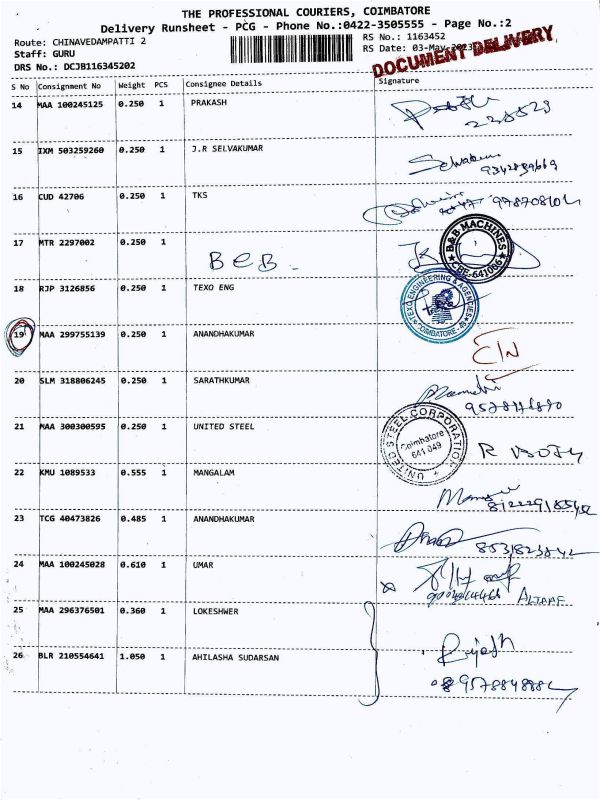 THE PROFESSIONAL COURIERS, COIMBATORE
Delivery Runsheet - PCG - Phone No.:0422-3505555 - Page No.:2
Route: CHINAVEDAMPATTI 2
RS No.: 1163452
Staff: GURU
RS Date: 03-May-2023
DRS No.: DCJB116345202
DOCUMENT DELIVERY
S No Consignment No Weight PCS Consignee Details Signature
14 MAA 100245125 0.250 1 PRAKASH
15 IXM 503259260 0.250 1 J.R SELVAKUMAR
Selvakum
16 CUD 42706 0.250 1 TKS
17 MTR 2297002 0.250 1
BEB.
B&B MACHINES
CBE-641006
18 RJP 3126856 0.250 1 TEXO ENG
TEXO ENGINEERING & AGENCIES
COIMBATORE
19 MAA 299755139 0.250 1 ANANDHAKUMAR
E/N
20 SLM 318806245 0.250 1 SARATHKUMAR
21 MAA 300300595 0.250 1 UNITED STEEL
UNITED STEEL CORPORATION
Coimbatore
641 049
22 KMU 1089533 0.555 1 MANGALAM
23 TCG 40473826 0.485 1 ANANDHAKUMAR
8531823842
24 MAA 100245028 0.610 1 UMAR
ALTAAF
25 MAA 296376501 0.360 1 LOKESHWER
26 BLR 210554641 1.050 1 AHILASHA SUDARSAN
Rajesh